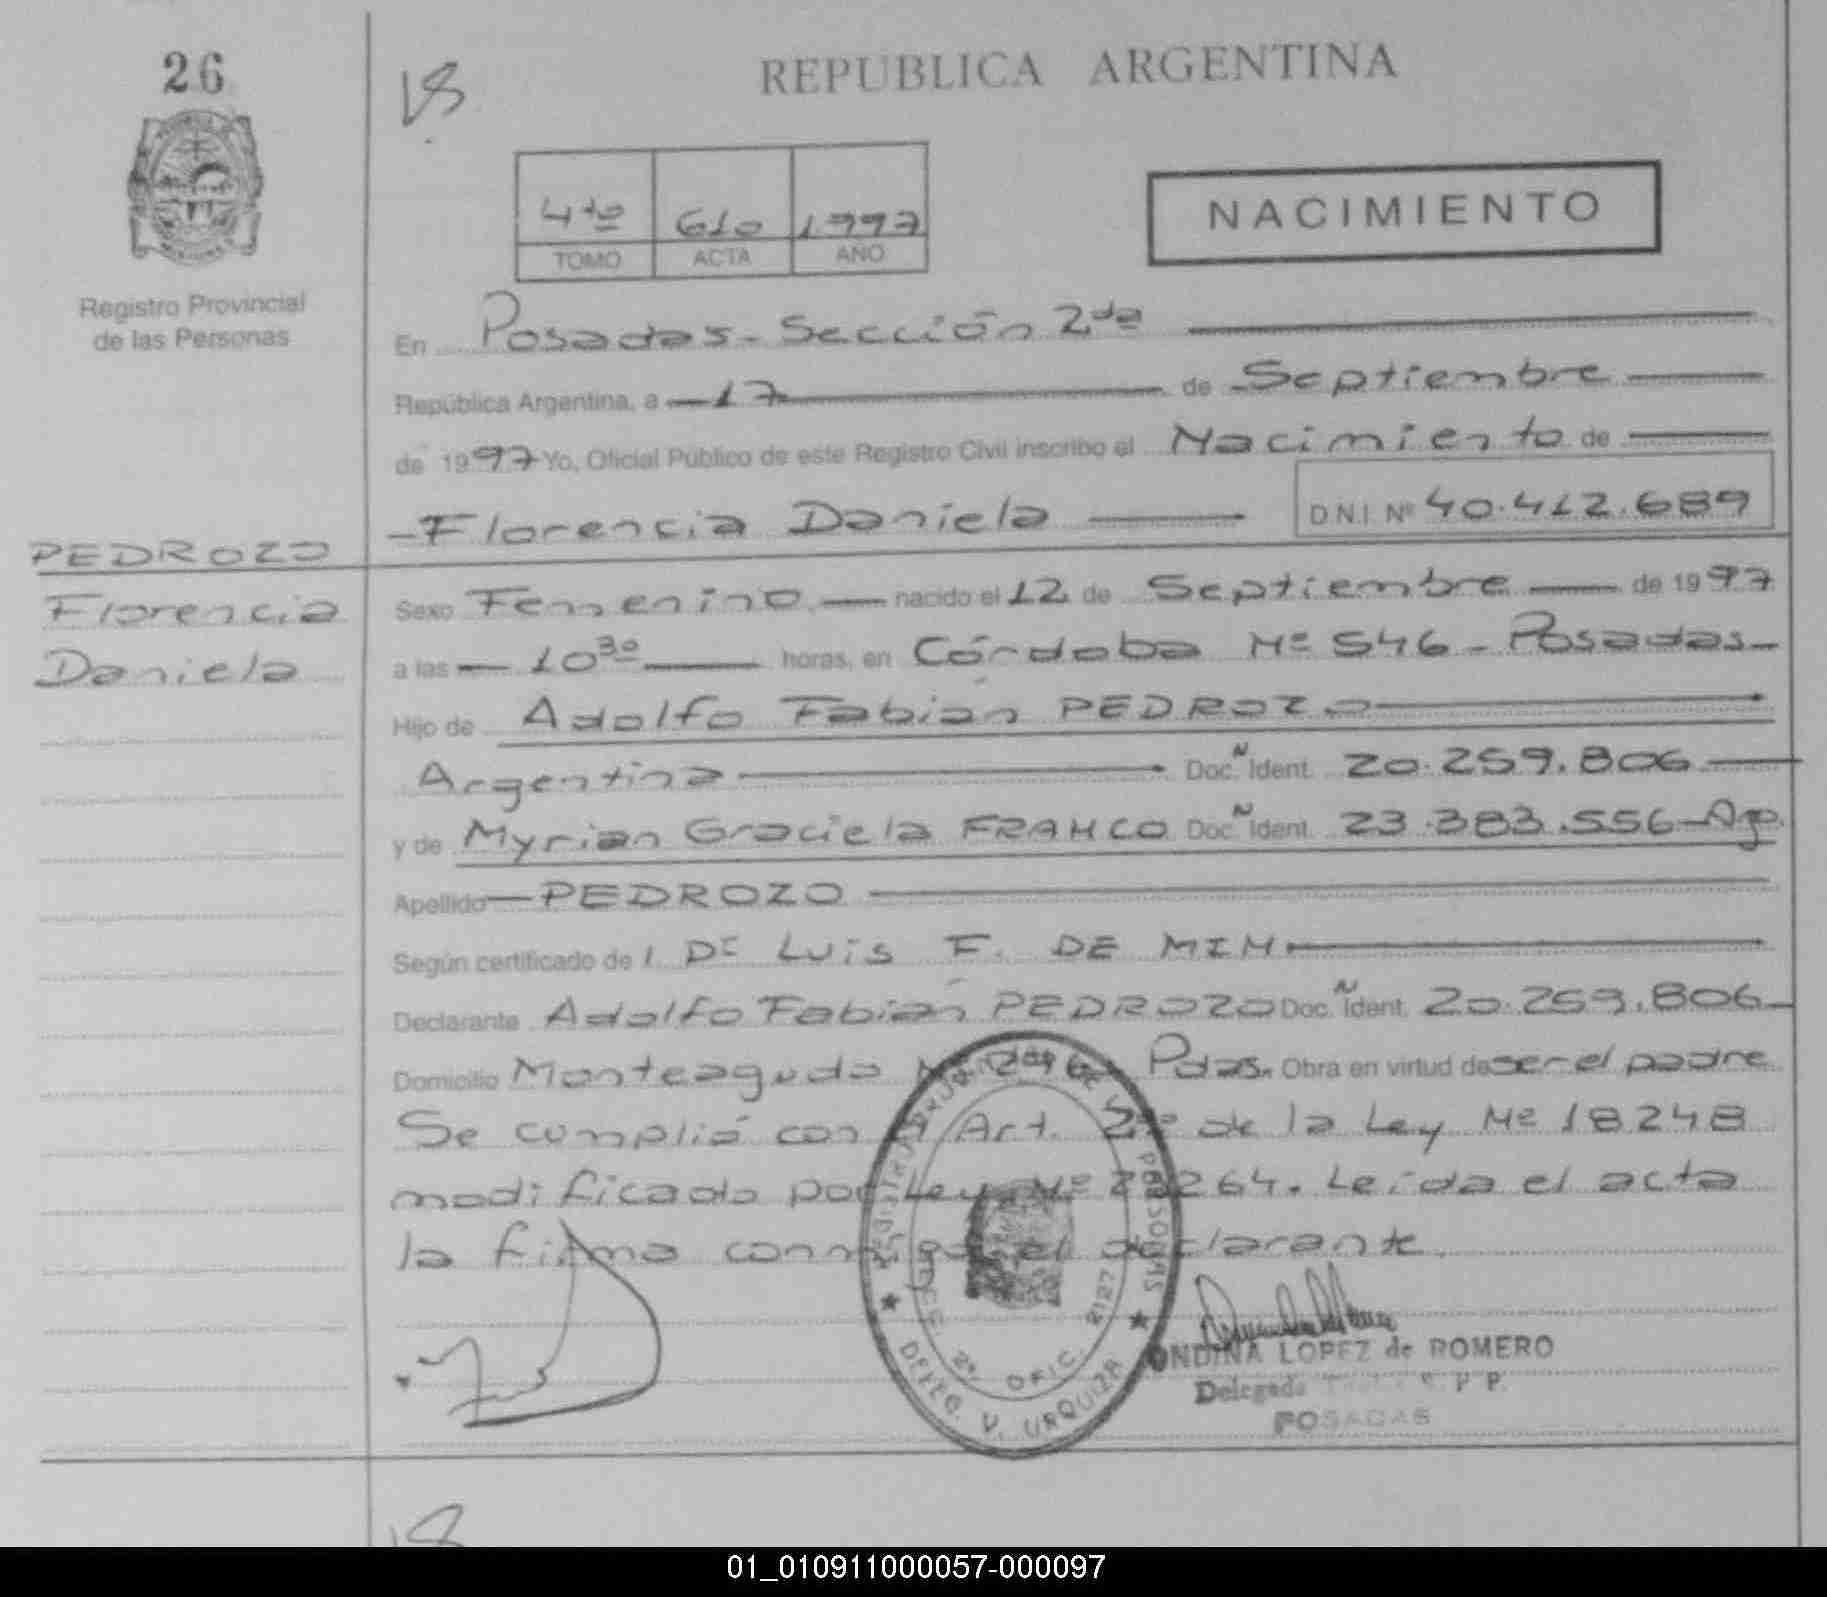 26
VS
REPUBLICA ARGENTINA
NACIMIENTO
4to 610 1997
TOMO ACTA AÑO
Registro Provincial
de las Personas
En Posadas - Sección 2da
República Argentina, a 17 de Septiembre
de 1997 Yo, Oficial Público de este Registro Civil inscribo el Nacimiento de
Florencia Daniela D.N.I. Nº 40.412.689
PEDROZO
Florencia
Daniela
Sexo Femenino nacido el 12 de Septiembre de 1997
a las 10 30 horas, en Córdoba Nº 546 - Posadas -
Hijo de Adolfo Fabián PEDROZO
Argentina Doc. Ident. 20.259.806
y de Myrian Graciela FRANCO Doc. Ident. 23.383.556 - Ag.
Apellido PEDROZO
Según certificado de Dr LUIS F. DE MIN
Declarante Adolfo Fabián PEDROZO Doc. Ident. 20.259.806 -
Domicilio Monteagudo Pdas. Obra en virtud de ser el padre
Se cumplió con Art. 2do de la Ley Nº 18248
modificado por Ley Nº 264. Leída el acta
la firma conmigo el declarante.
OFIC. 2127
DPTO. V. URQUIZA
ONDINA LOPEZ de ROMERO
Delegada
POSADAS
01_010911000057-000097